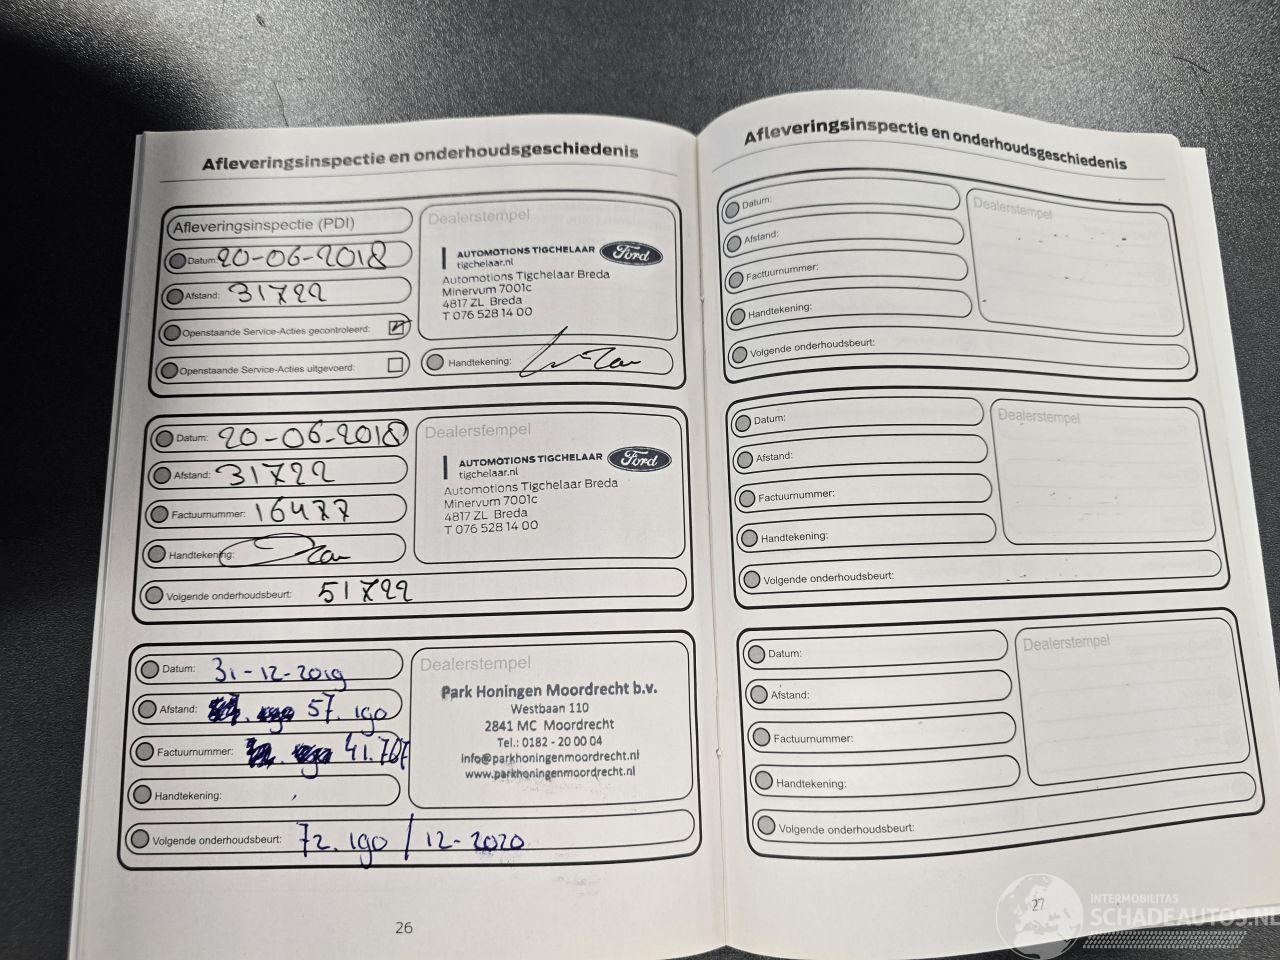 Afleveringsinspectie en onderhoudsgeschiedenis
Afleveringsinspectie (PDI)
Datum: 20-06-2018
Afstand: 31722
Openstaande Service-Acties gecontroleerd:
Openstaande Service-Acties uitgevoerd:
Dealerstempel
AUTOMOTIONS TIGCHELAAR Ford
tigchelaar.nl
Automotions Tigchelaar Breda
Minervum 7001c
4817 ZL Breda
T 076 528 14 00
Handtekening:
Datum: 20-06-2018
Afstand: 31722
Factuurnummer: 16477
Handtekening:
Volgende onderhoudsbeurt: 51722
Dealerstempel
AUTOMOTIONS TIGCHELAAR Ford
tigchelaar.nl
Automotions Tigchelaar Breda
Minervum 7001c
4817 ZL Breda
T 076 528 14 00
Datum: 31-12-2019
Afstand: 57.190
Factuurnummer: 41.767
Handtekening:
Volgende onderhoudsbeurt: 72.190 / 12-2020
Dealerstempel
Park Honingen Moordrecht b.v.
Westbaan 110
2841 MC Moordrecht
Tel.: 0182 - 20 00 04
info@parkhoningenmoordrecht.nl
www.parkhoningenmoordrecht.nl
26
Afleveringsinspectie en onderhoudsgeschiedenis
Datum:
Afstand:
Factuurnummer:
Handtekening:
Volgende onderhoudsbeurt:
Dealerstempel
Datum:
Afstand:
Factuurnummer:
Handtekening:
Volgende onderhoudsbeurt:
Dealerstempel
Datum:
Afstand:
Factuurnummer:
Handtekening:
Volgende onderhoudsbeurt:
Dealerstempel
27
INTERMOBILITAS
SCHADEAUTOS.NL